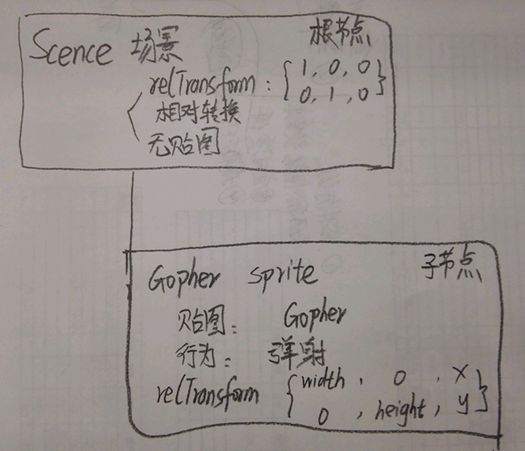 Scence 场景 根节点
relTransform : {1, 0, 0
0, 1, 0}
相对转换
无贴图
Gopher sprite 子节点
贴图: Gopher
行为: 弹射
relTransform {width, 0, x
0, height, y}